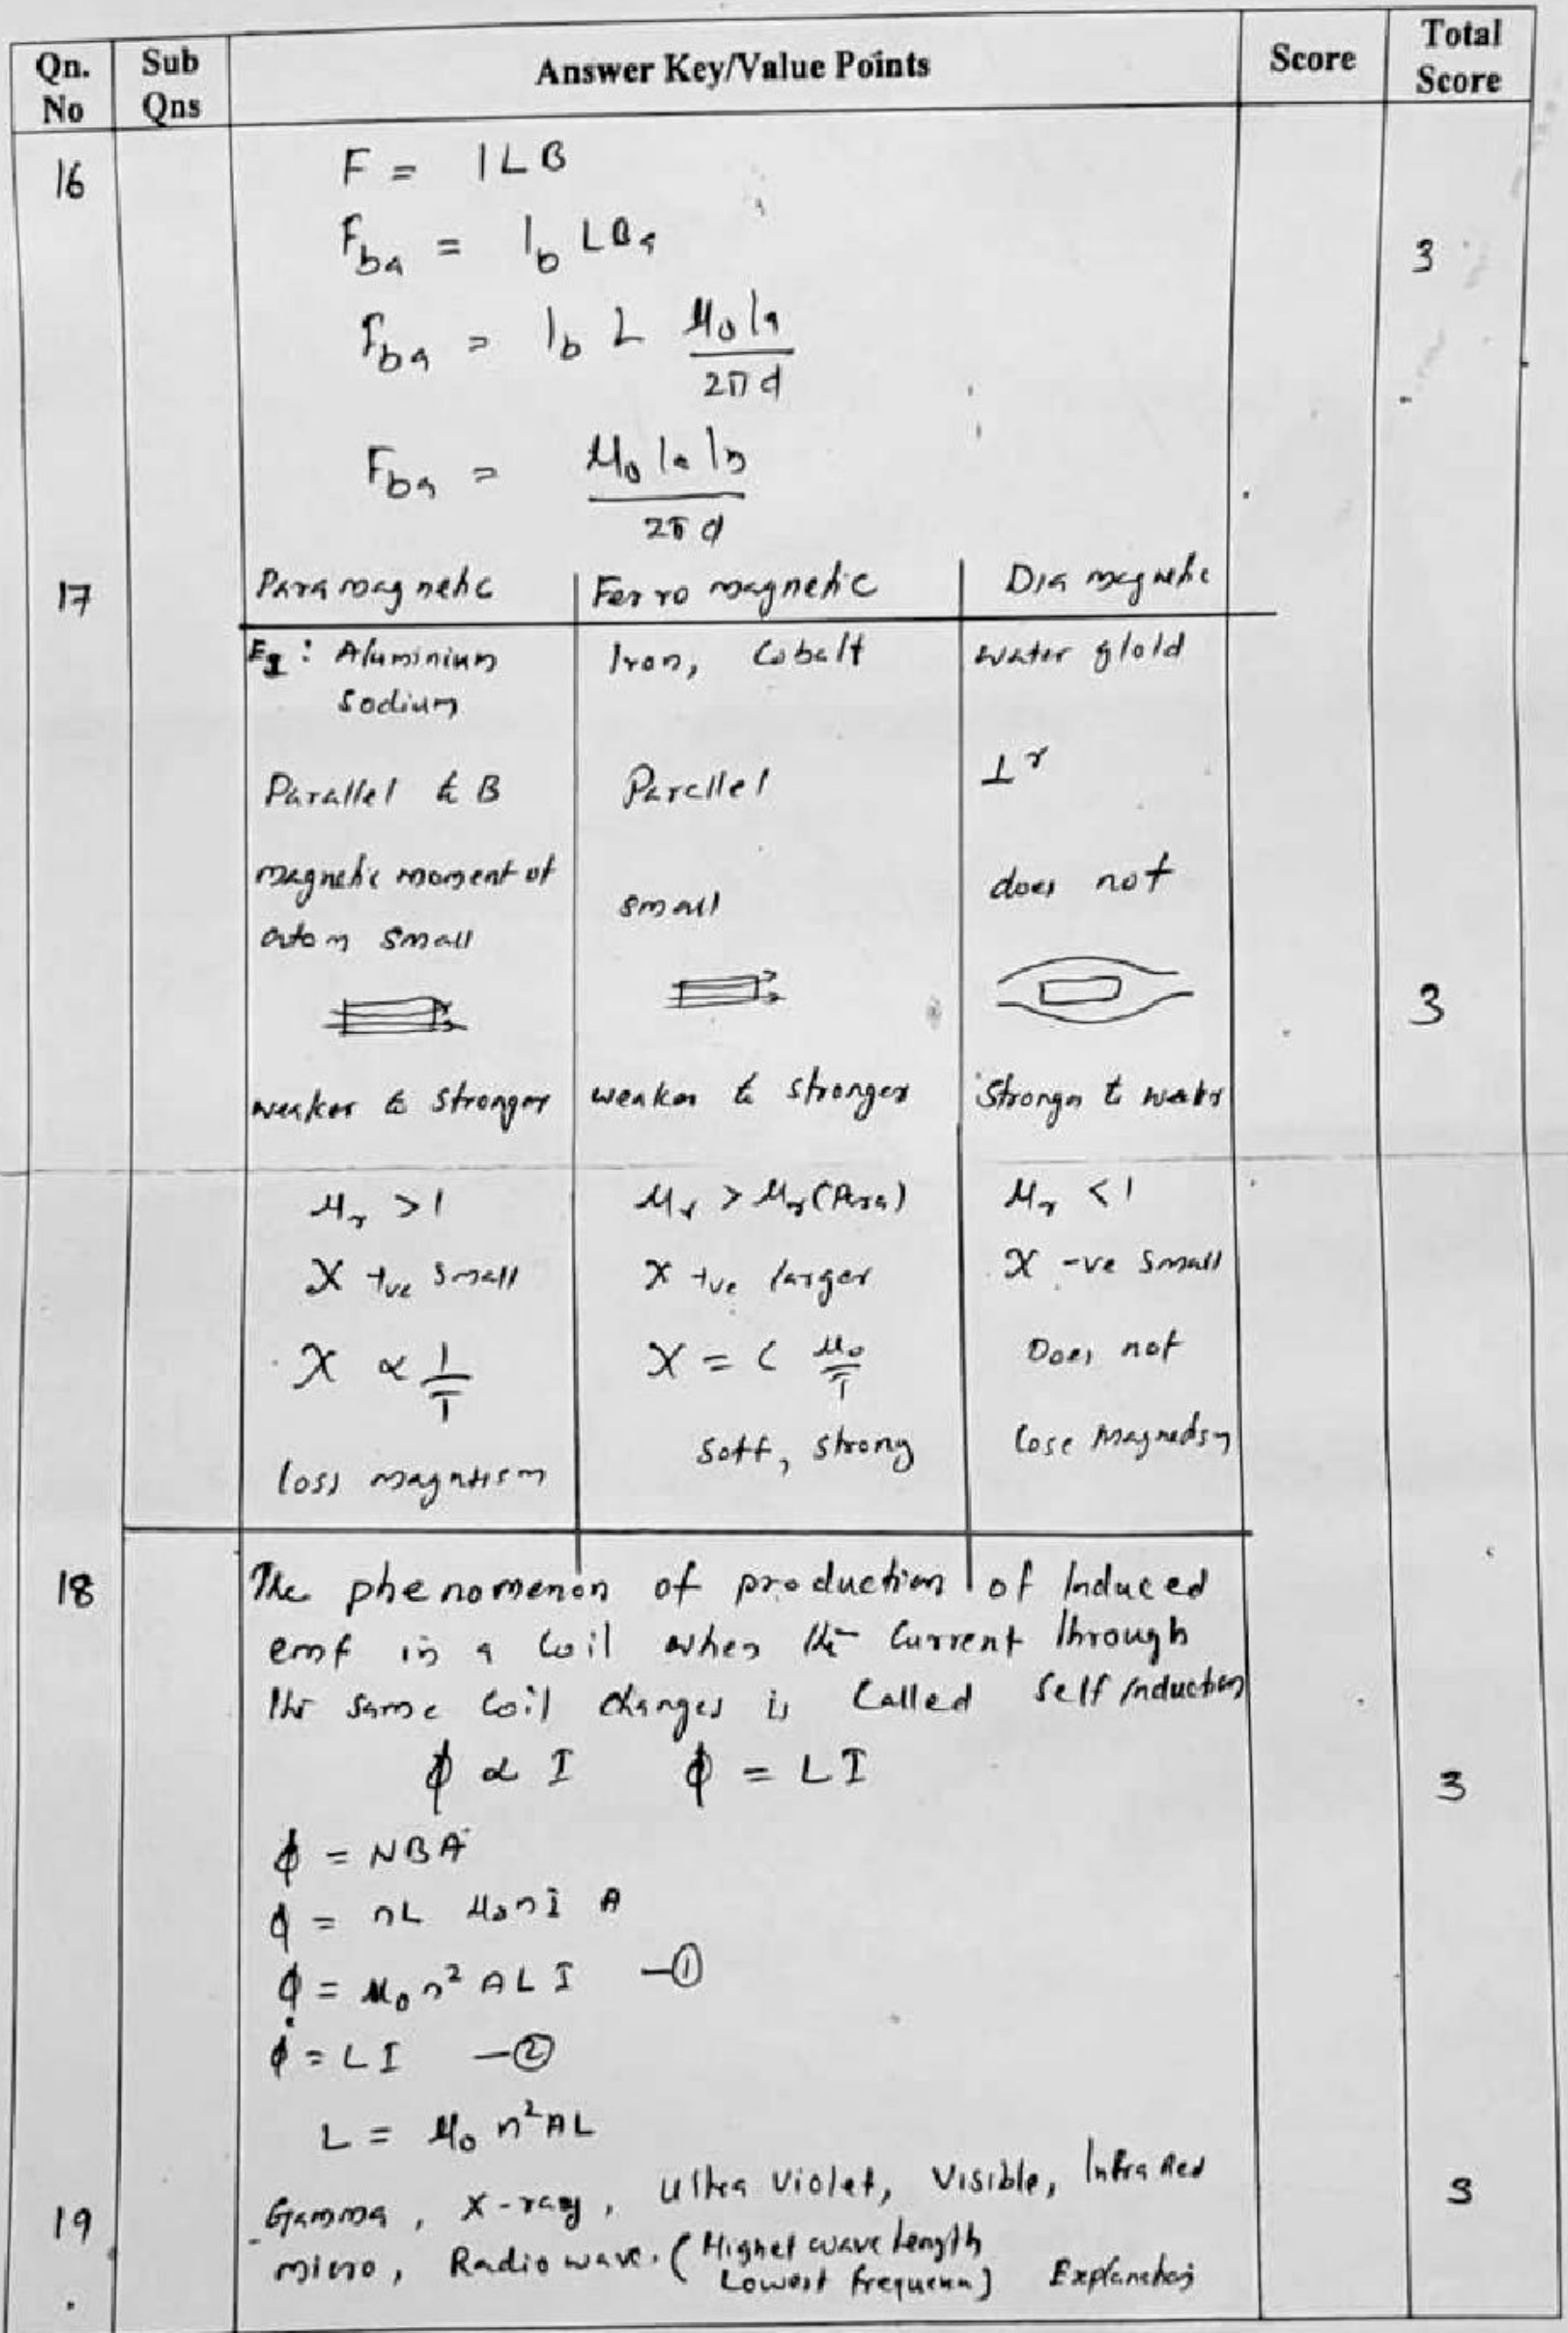 Qn. No | Sub Qns | Answer Key/Value Points | Score | Total Score
16
F = ILB
F_ba = I_b L B_a
3
F_ba = I_b L μ₀ I_a / 2π d
F_ba = μ₀ I_a I_b / 2π d
17 | Para magnetic | Ferro magnetic | Dia magnetic
Eg : Aluminium | Iron, Cobalt | water gold
Sodium
Parallel to B | Parellel | ⊥r
magnetic moment of | small | does not
atom small
3
weaker to stronger | weaker to stronger | Stronger to weaker
μr > 1 | μr > μr (Para) | μr < 1
X +ve small | X +ve larger | X -ve small
X ∝ 1/T | X = C μ₀/T | Does not
loss magnetism | Soft, strong | lose magnetism
18 The phenomenon of production of Induced
emf in a coil when the Current through
the same coil changes is called self induction
ϕ ∝ I ϕ = LI
3
ϕ = NBA
ϕ = nL μ₀nI A
ϕ = μ₀ n² A L I —①
ϕ = LI —②
L = μ₀ n² AL
19 Gamma, X-ray, Ultra Violet, Visible, Infra Red
3
micro, Radio wave. (Highet wave length
Lowest frequency) Explanation